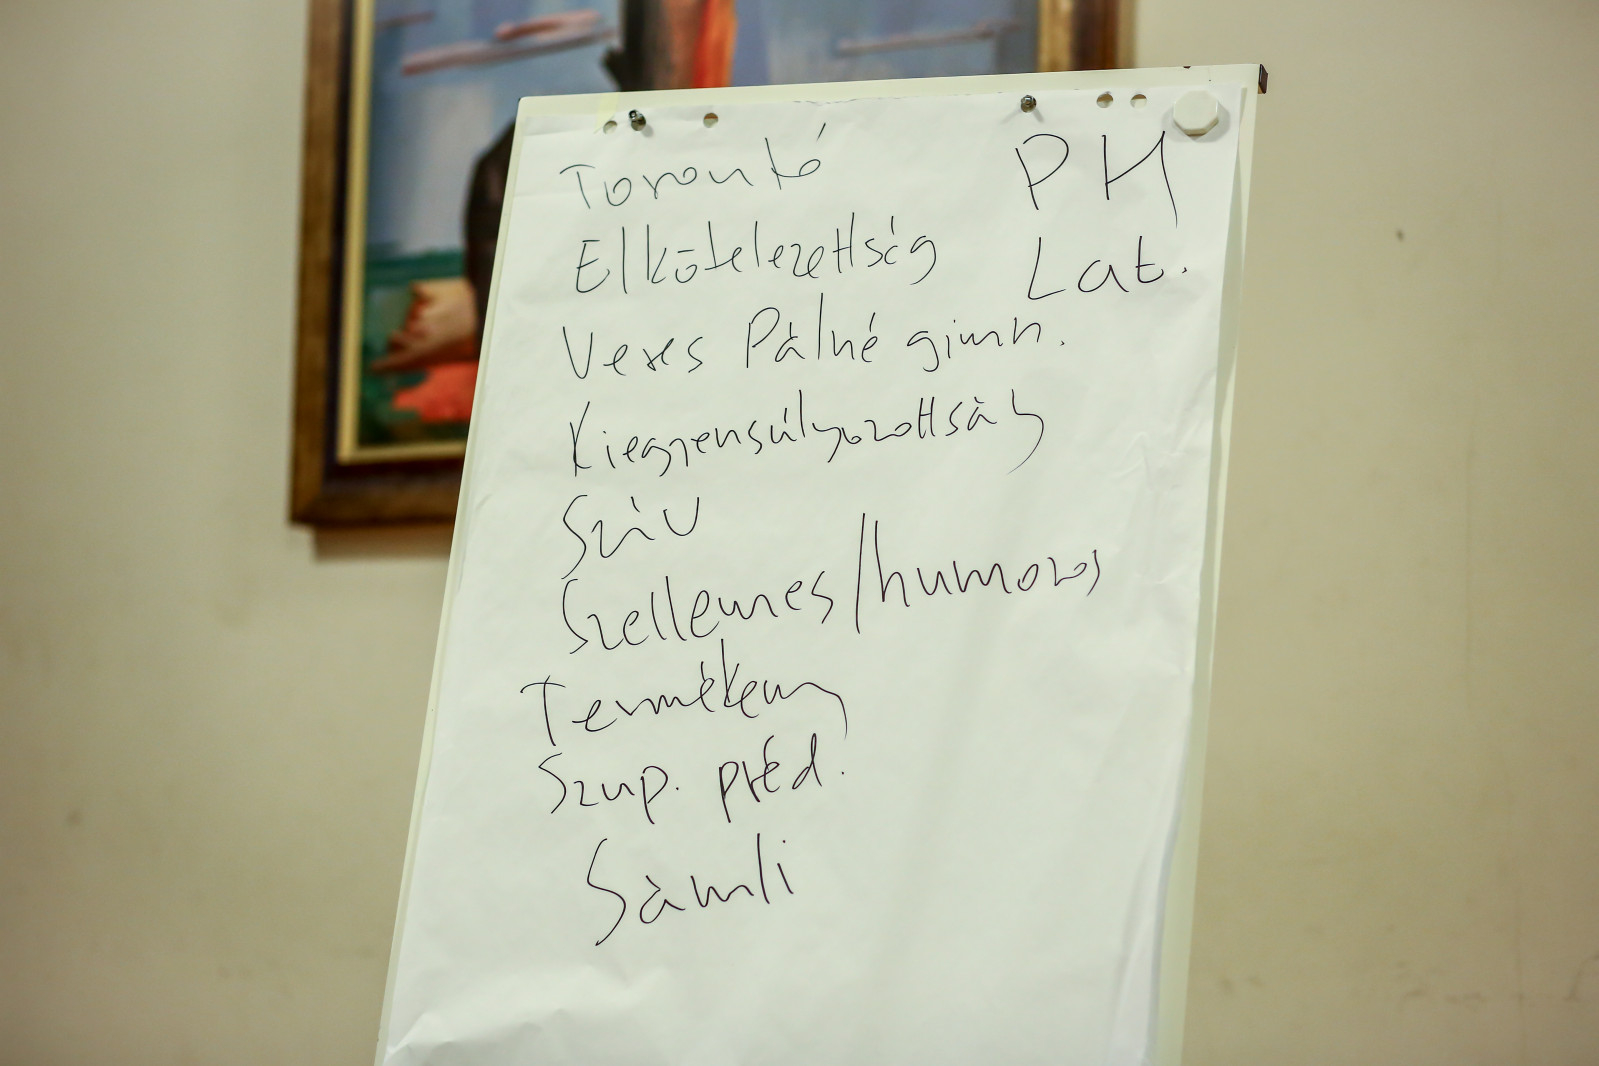 Torontó
PH
Elkötelezettség
Lat.
Veres Pálné gimn.
Kiegyensúlyozottság
Szív
Szellemes/humoros
Termékeny
Szup. préd.
Sámli